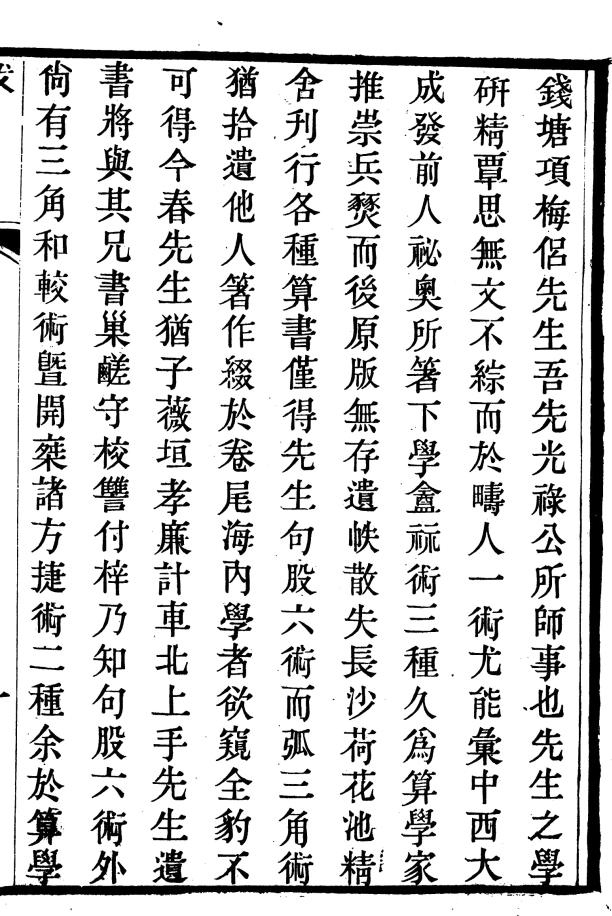 錢塘項梅侶先生吾先光祿公所師事也先生之學
硏精覃思無文不綜而於疇人一術尤能彙中西大
成發前人祕奧所箸下學盦祘術三種久爲算學家
推崇兵燹而後原版無存遺帙散失長沙荷花池精
舍刊行各種算書僅得先生句股六術而弧三角術
猶拾遺他人箸作綴於卷尾海內學者欲窺全豹不
可得今春先生猶子薇垣孝廉計車北上手先生遺
書將與其兄書巢鹺守校讐付梓乃知句股六術外
尙有三角和較術暨開棄諸方捷術二種余於算學